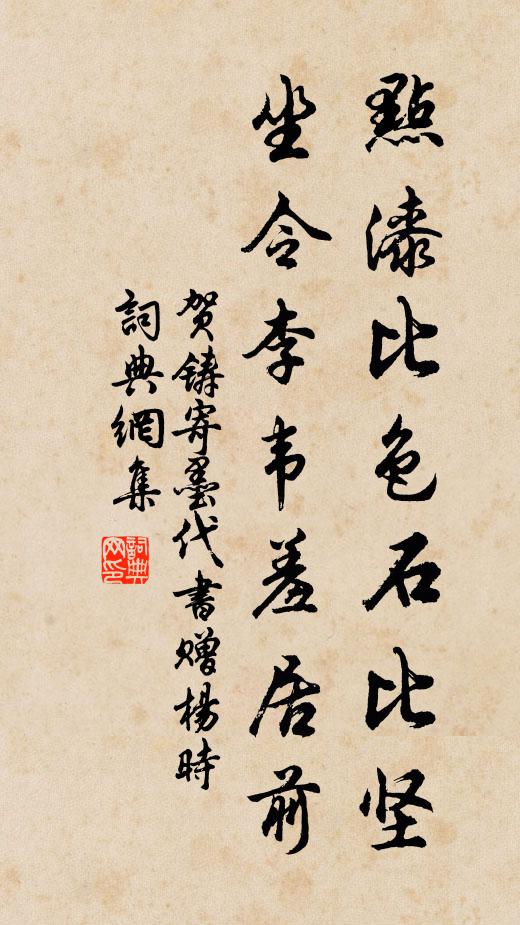 點漆比色石比坚
坐令李韦羞居前
贺铸寄墨代書赠楊時
詞典網集
詞典网印